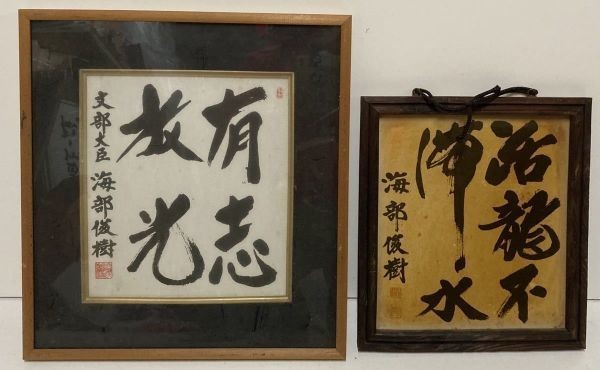 有志
放光
文部大臣 海部俊樹
活龍不
滞水
海部俊樹